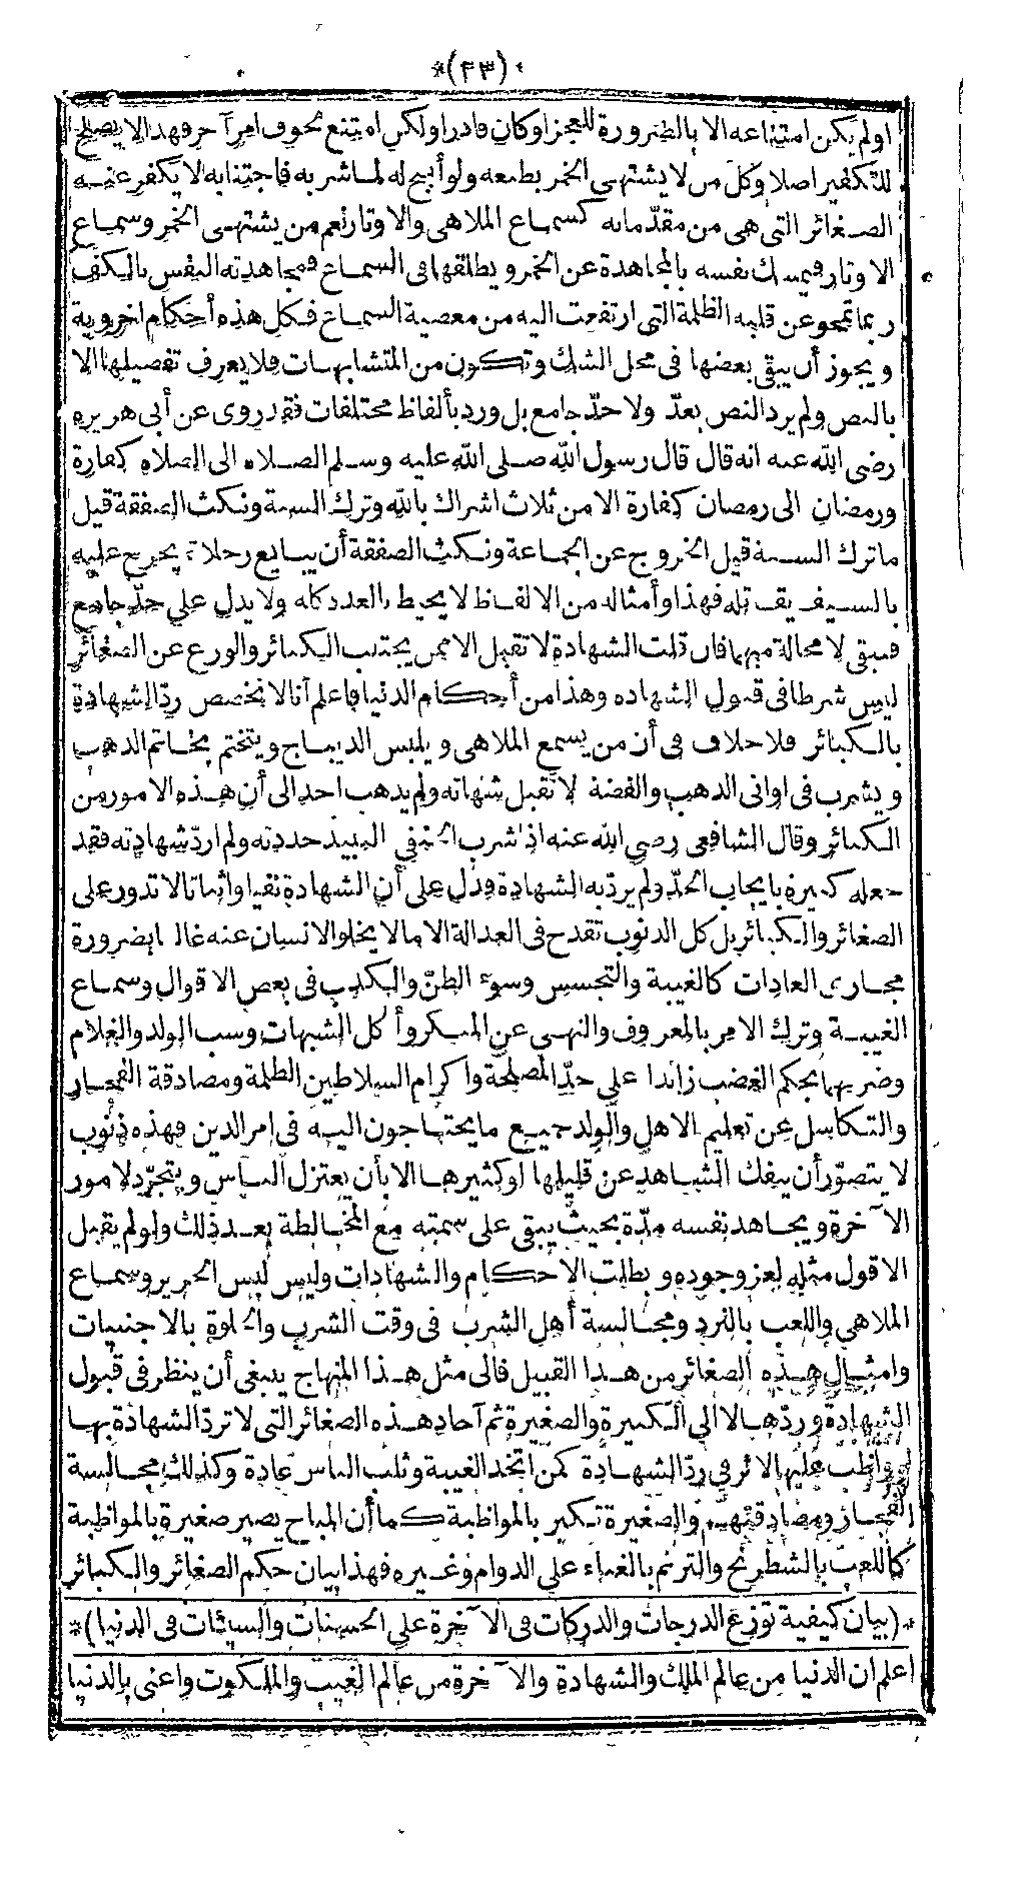 *(٢٣)*
اولم يكن امتناعه الا بالضرورة للعجز او كان قادرا ولكن امتنع لخوف امر آخر فهذا لا يصلح
للتكفير اصلا وكل من لا يشتهى الخمر بطبعه ولو أبيح له لما شربه فاجتنابه لا يكفر عنه
الصغائر التى هى من مقدّماته كسماع الملاهى والاوتار نعم من يشتهى الخمر وسماع
الاوتار فيمسك نفسه بالمجاهدة عن الخمر ويطلقها فى السماع فمجاهدته النفس بالكف
ربما تمحو عن قلبه الظلمة التى ارتفعت اليه من معصية السماع فكل هذه أحكام اخروية
ويجوز أن يبقى بعضها فى محل الشك وتكون من المتشابهات فلا يعرف تفصيلها الا
بالنص ولم يرد النص بعدّ ولا حدّ جامع بل ورد بألفاظ مختلفات فقد روى عن أبى هريره
رضى الله عنه انه قال قال رسول الله صلى الله عليه وسلم الصلاه الى الصلاه كفارة
ورمضان الى رمضان كفارة الا من ثلاث اشراك بالله وترك السنة ونكث الصفقة قيل
ما ترك السنة قيل الخروج عن الجماعة ونكث الصفقة أن يبايع رجلا ثم يخرج عليه
بالسيف يقاتله فهذا وأمثاله من الالفاظ لا يحيط بالعدد كله ولا يدل على حدّ جامع
فيبقى لا محالة مبهما فان قلت الشهادة لا تقبل الا ممن يجتنب الكبائر والورع عن الصغائر
ليس شرطا فى قبول الشهاده وهذا من أحكام الدنيا فاعلم أنا لا نخصص ردّ الشهادة
بالكبائر فلا خلاف فى أن من يسمع الملاهى ويلبس الديباج ويتختم بخاتم الذهب
ويشرب فى اوانى الذهب والفضة لا تقبل شهاته ولم يذهب احد الى أن هذه الامور من
الكبائر وقال الشافعى رضى الله عنه اذا شرب الحنفي النبيذ حددته ولم اردّ شهادته فقد
جعله كبيرة بايجاب الحدّ ولم يردّ به الشهادة فدل على أن الشهادة نفيا واثباتا لا تدور على
الصغائر والكبائر بل كل الذنوب تقدح فى العدالة الا ما لا يخلو الانسان عنه غالبا بضرورة
مجارى العادات كالغيبة والتجسس وسوء الظنّ والكذب فى بعض الاقوال وسماع
الغيبة وترك الامر بالمعروف والنهى عن المنكر وأكل الشبهات وسب الولد والغلام
وضربهما بحكم الغضب زائدا على حدّ المصلحة واكرام السلاطين الظلمة ومصادقة الفجار
والتكاسل عن تعليم الاهل والولد جميع ما يحتاجون اليه فى امر الدين فهذه ذنوب
لا يتصوّر أن ينفك الشاهد عن قليلها او كثيرها الا بأن يعتزل الناس ويتجرّد لامور
الآخرة ويجاهد نفسه مدّة بحيث يبقى على سمته مع المخالطة بعد ذلك ولو لم يقبل
الا قول مثله لعز وجوده وبطلت الاحكام والشهادات وليس لبس الحرير وسماع
الملاهى واللعب بالنرد ومجالسة أهل الشرب فى وقت الشرب والخلوة بالاجنبيات
وامثال هذه الصغائر من هذا القبيل فالى مثل هذا المنهاج ينبغى أن ينظر فى قبول
الشهادة وردّها لا الى الكبيرة والصغيرة ثم آحاد هذه الصغائر التى لا تردّ الشهادة بها
لو واظب عليها لاثر فى ردّ الشهادة كمن اتخذ الغيبة وثلب الناس عادة وكذلك مجالسة
الفجار ومصادقتهم والصغيرة تكبر بالمواظبة كما أن المباح يصير صغيرة بالمواظبة
كاللعب بالشطرنج والترنم بالغناء على الدوام وغيره فهذا بيان حكم الصغائر والكبائر
*(بيان كيفية توزع الدرجات والدركات فى الآخرة على الحسنات والسيئات فى الدنيا)*
اعلم ان الدنيا من عالم الملك والشهادة والآخرة من عالم الغيب والملكوت واعنى بالدنيا